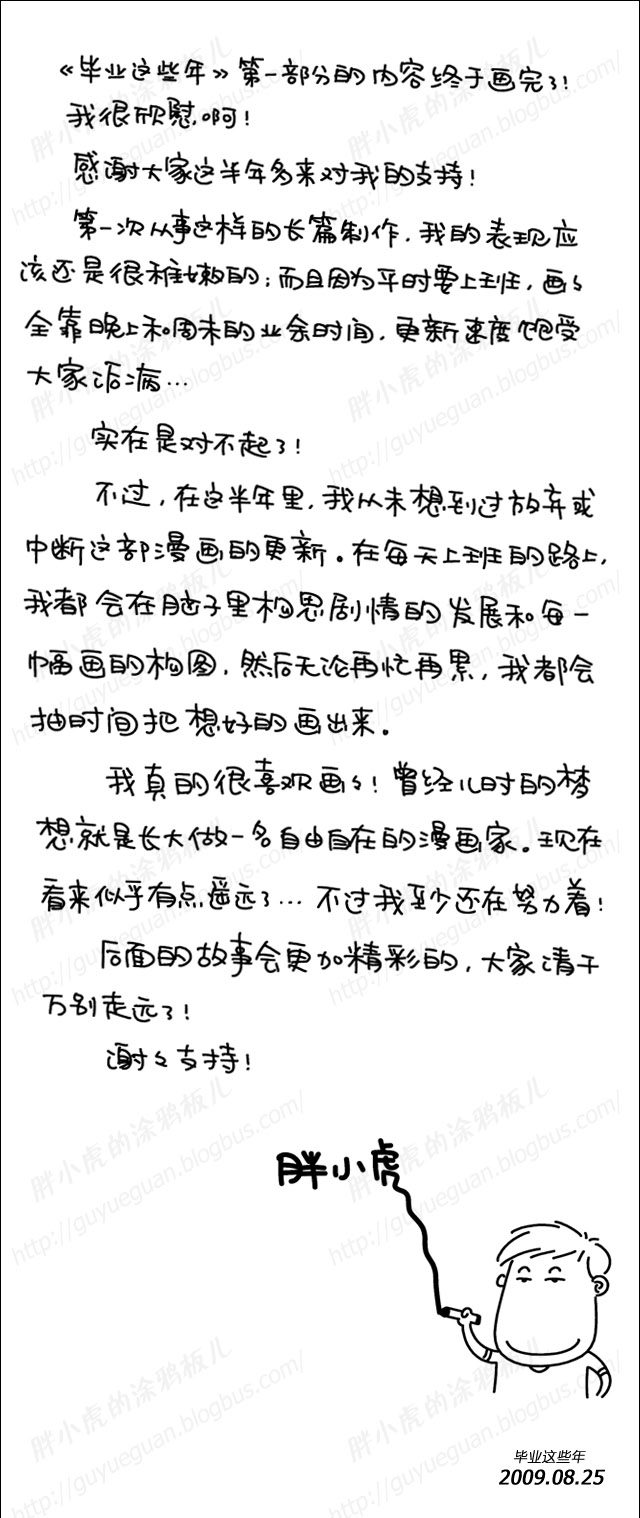 《毕业这些年》第一部分的内容终于画完了!
我很欣慰啊!
感谢大家这半年多来对我的支持!
第一次从事这样的长篇制作,我的表现应
该还是很稚嫩的;而且因为平时要上班,画々
全靠晚上和周末的业余时间,更新速度饱受
大家诟病...
实在是对不起了!
不过,在这半年里,我从未想到过放弃或
中断这部漫画的更新。在每天上班的路上,
我都会在脑子里构思剧情的发展和每一
幅画的构图,然后无论再忙再累,我都会
抽时间把想好的画出来。
我真的很喜欢画々!曾经儿时的梦
想就是长大做一名自由自在的漫画家。现在
看来似乎有点遥远了...不过我至少还在努力着!
后面的故事会更加精彩的,大家请千
万别走远了!
谢々支持!
胖小虎
毕业这些年
2009.08.25
胖小虎的涂鸦板儿
http://guyueguan.blogbus.com/